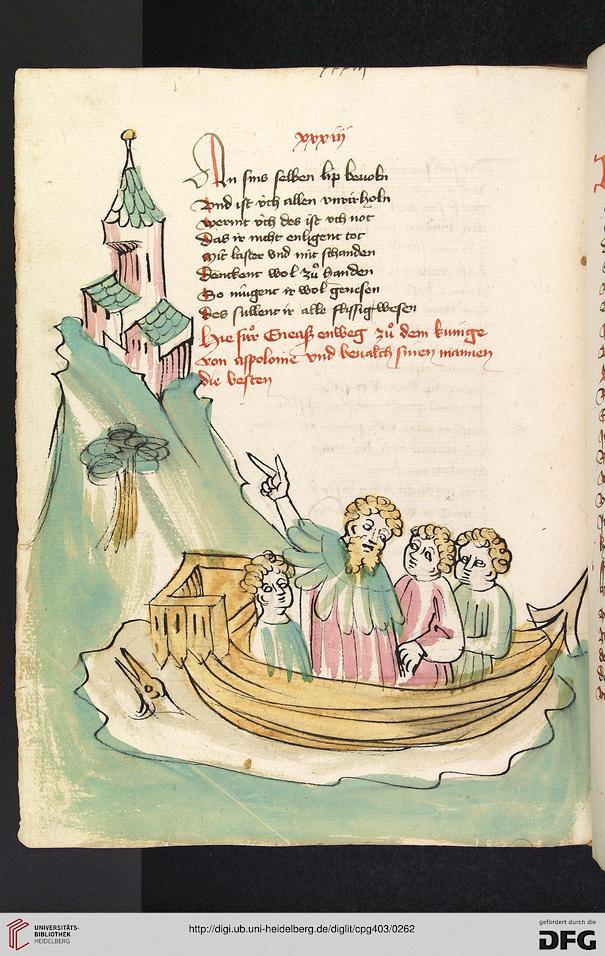 xxxiij
An sins selben lip bevoln
Und ist vch allen vnvirholn
Werint vch des ist vch not
Das ir nicht enligent tot
Mit laster vnd mit schanden
Denckent wol zů handen
So mugent ir wol genesen
Des sullent ir alle flissig wesen
Hie fůr Eneasz enweg zů dem kunige
von appolonie vnd bevalch sinen mannen
die vesten
UNIVERSITÄTS-
BIBLIOTHEK
HEIDELBERG
http://digi.ub.uni-heidelberg.de/diglit/cpg403/0262
gefördert durch die
DFG